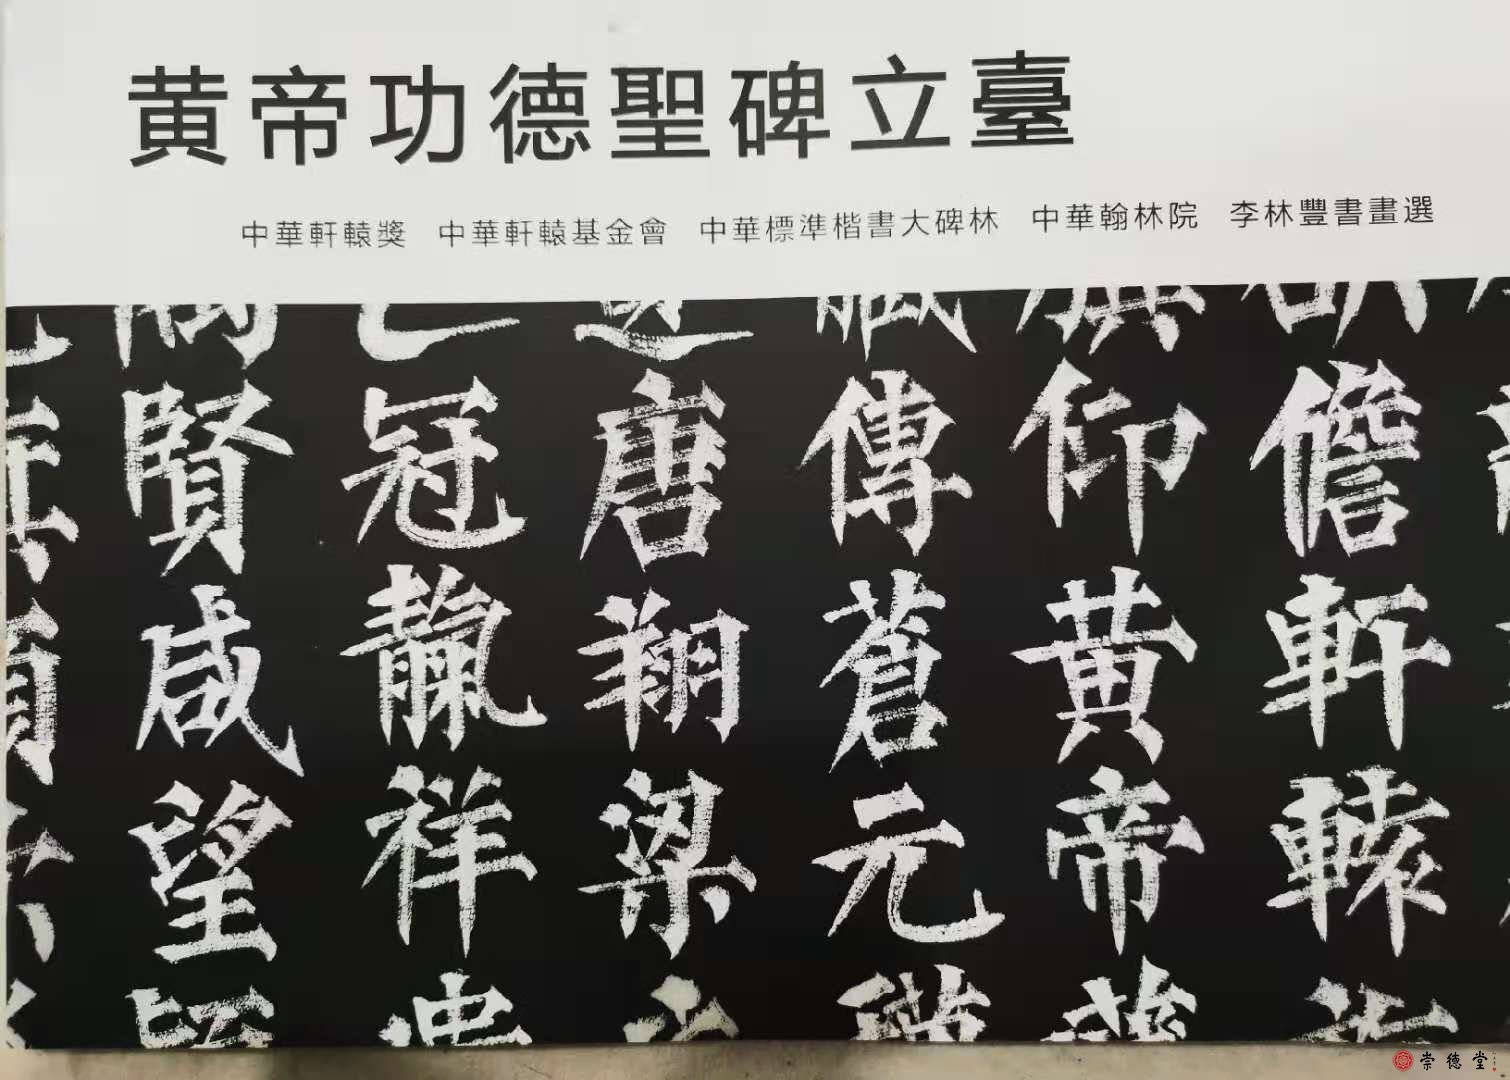 黄帝功德聖碑立臺
中華軒轅獎 中華軒轅基金會 中華標準楷書大碑林 中華翰林院 李林豐書畫選
儋軒轅
仰黄帝
傳蒼元
唐翔梁
冠祥
賢咸望
崇德堂